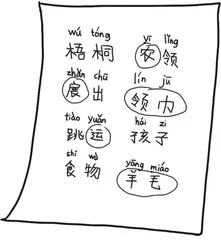 wú tóng yī lǐng
梧桐 农领
zhǎn chū lín jū
展出 领巾
tiào yuǎn hái zi
跳运 孩子
shí wù yáng miáo
食物 羊毛